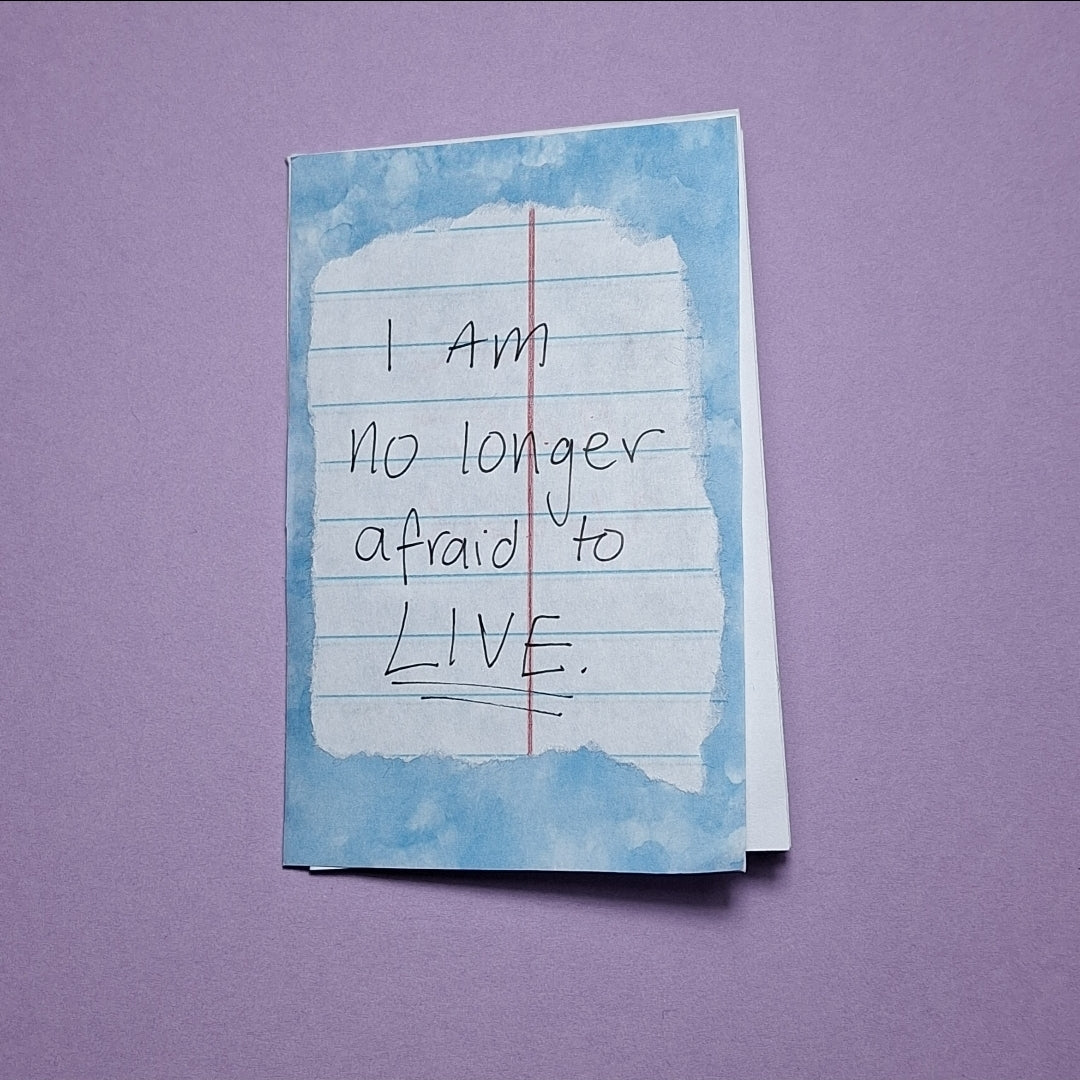 I AM
no longer
afraid to
LIVE.